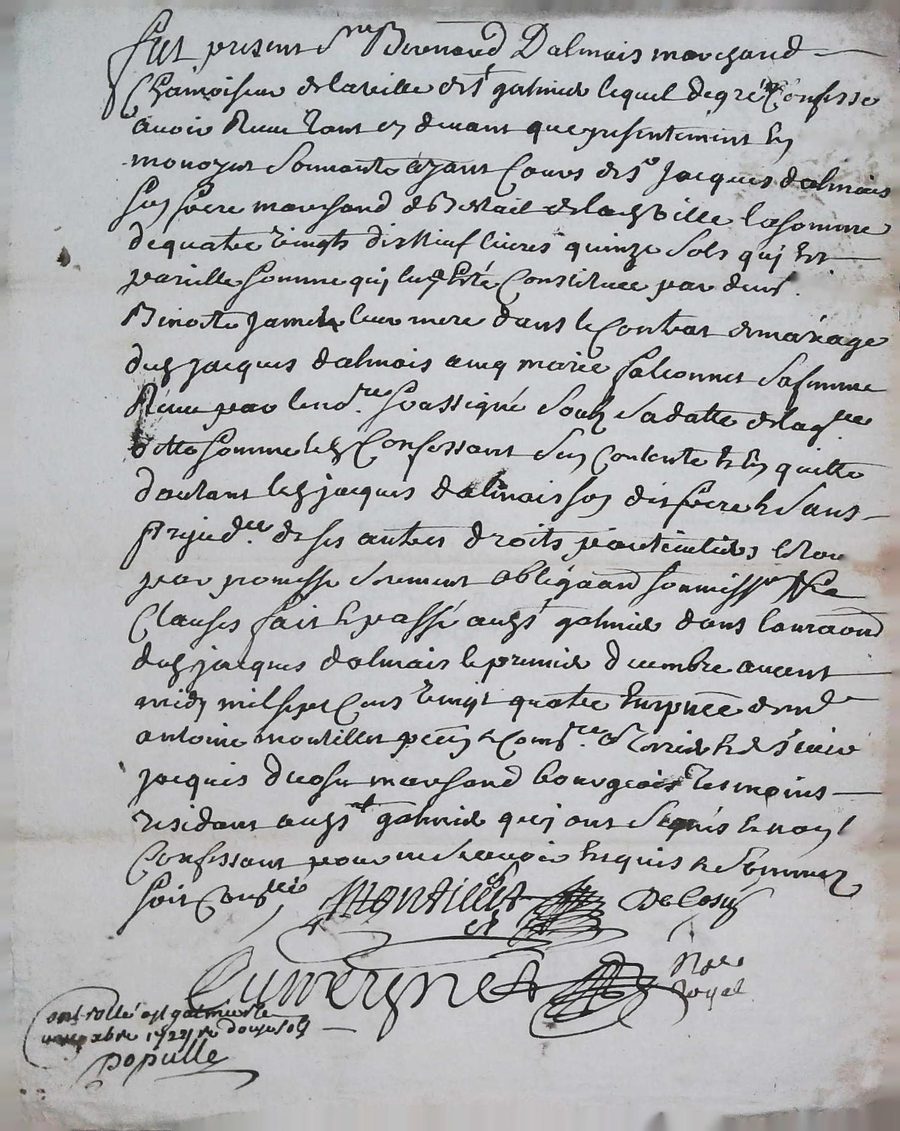 fut present Sr Bernard Dalmais marchand
Chamoiseur de la ville de St galmier lequel de gré Confesse
avoir Receu tant cy devant que presentement En
monoyes Sonnante ayant Cours de Sr Jacques dalmais
Son frere marchand de la ville la somme
de quatre vingts dix Neuf livres quinze Sols qui Est
pareille Somme qui luy a Esté Constituée par
Benoite leur mere dans le Contrat de mariage
dud jacques dalmais avec marie falconnet Sa femme
Receu par le nore Soussigné Soubs Sa datte de laqlle
ditte Somme led Confessant S'en Contente & En quitte
dautant led jacques dalmais son dit frere & Sans
prejudce de ses autres droits
par promesse Serment obligaons Soumissons &
Clauses fait & passé aud St galmier dans
dud jacques dalmais le premier decembre avant
midy mil sept Cens vingt quatre En pnce de
antoine montillet & & de Sieur
jacques marchand bourgeois tesmoins
residant aud St galmier qui ont Signés & non led
Confessant pour ne Scavoir Enquis & Sommez
Soit
Montillet
Auvergne
Nore
Royal
Controllé a St galmier le
1724 Re douze sols
populle